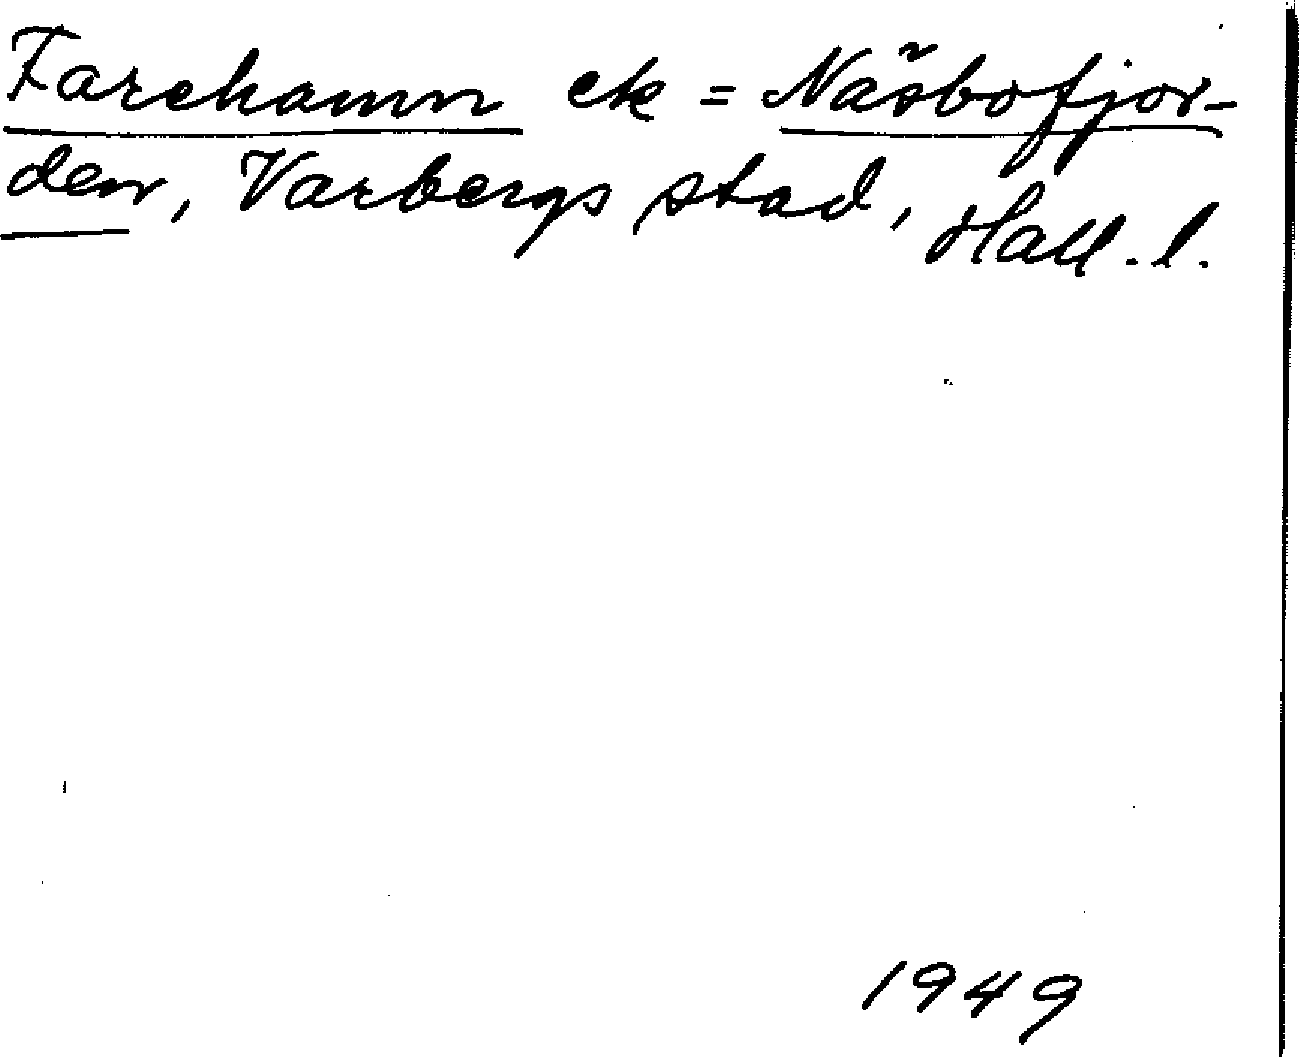 Farehamn ek = Näsbofjor-
den, Varbergs stad, Hall. l.
1949